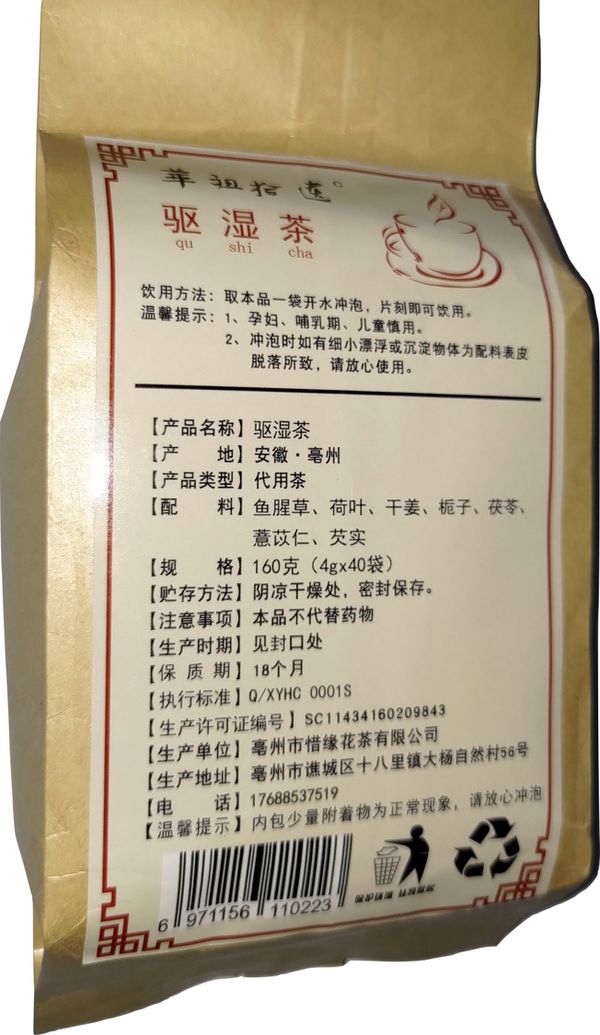 華祖拾遺
驱湿茶
qu shi cha
饮用方法：取本品一袋开水冲泡，片刻即可饮用。
温馨提示：1、孕妇、哺乳期、儿童慎用。
2、冲泡时如有细小漂浮或沉淀物体为配料表皮
脱落所致，请放心使用。
【产品名称】驱湿茶
【产 地】安徽·亳州
【产品类型】代用茶
【配 料】鱼腥草、荷叶、干姜、栀子、茯苓、
薏苡仁、芡实
【规 格】160克（4gx40袋）
【贮存方法】阴凉干燥处，密封保存。
【注意事项】本品不代替药物
【生产时期】见封口处
【保 质 期】18个月
【执行标准】Q/XYHC 0001S
【生产许可证编号】SC11434160209843
【生产单位】亳州市惜缘花茶有限公司
【生产地址】亳州市谯城区十八里镇大杨自然村56号
【电 话】17688537519
【温馨提示】内包少量附着物为正常现象，请放心冲泡
6 971156 110223